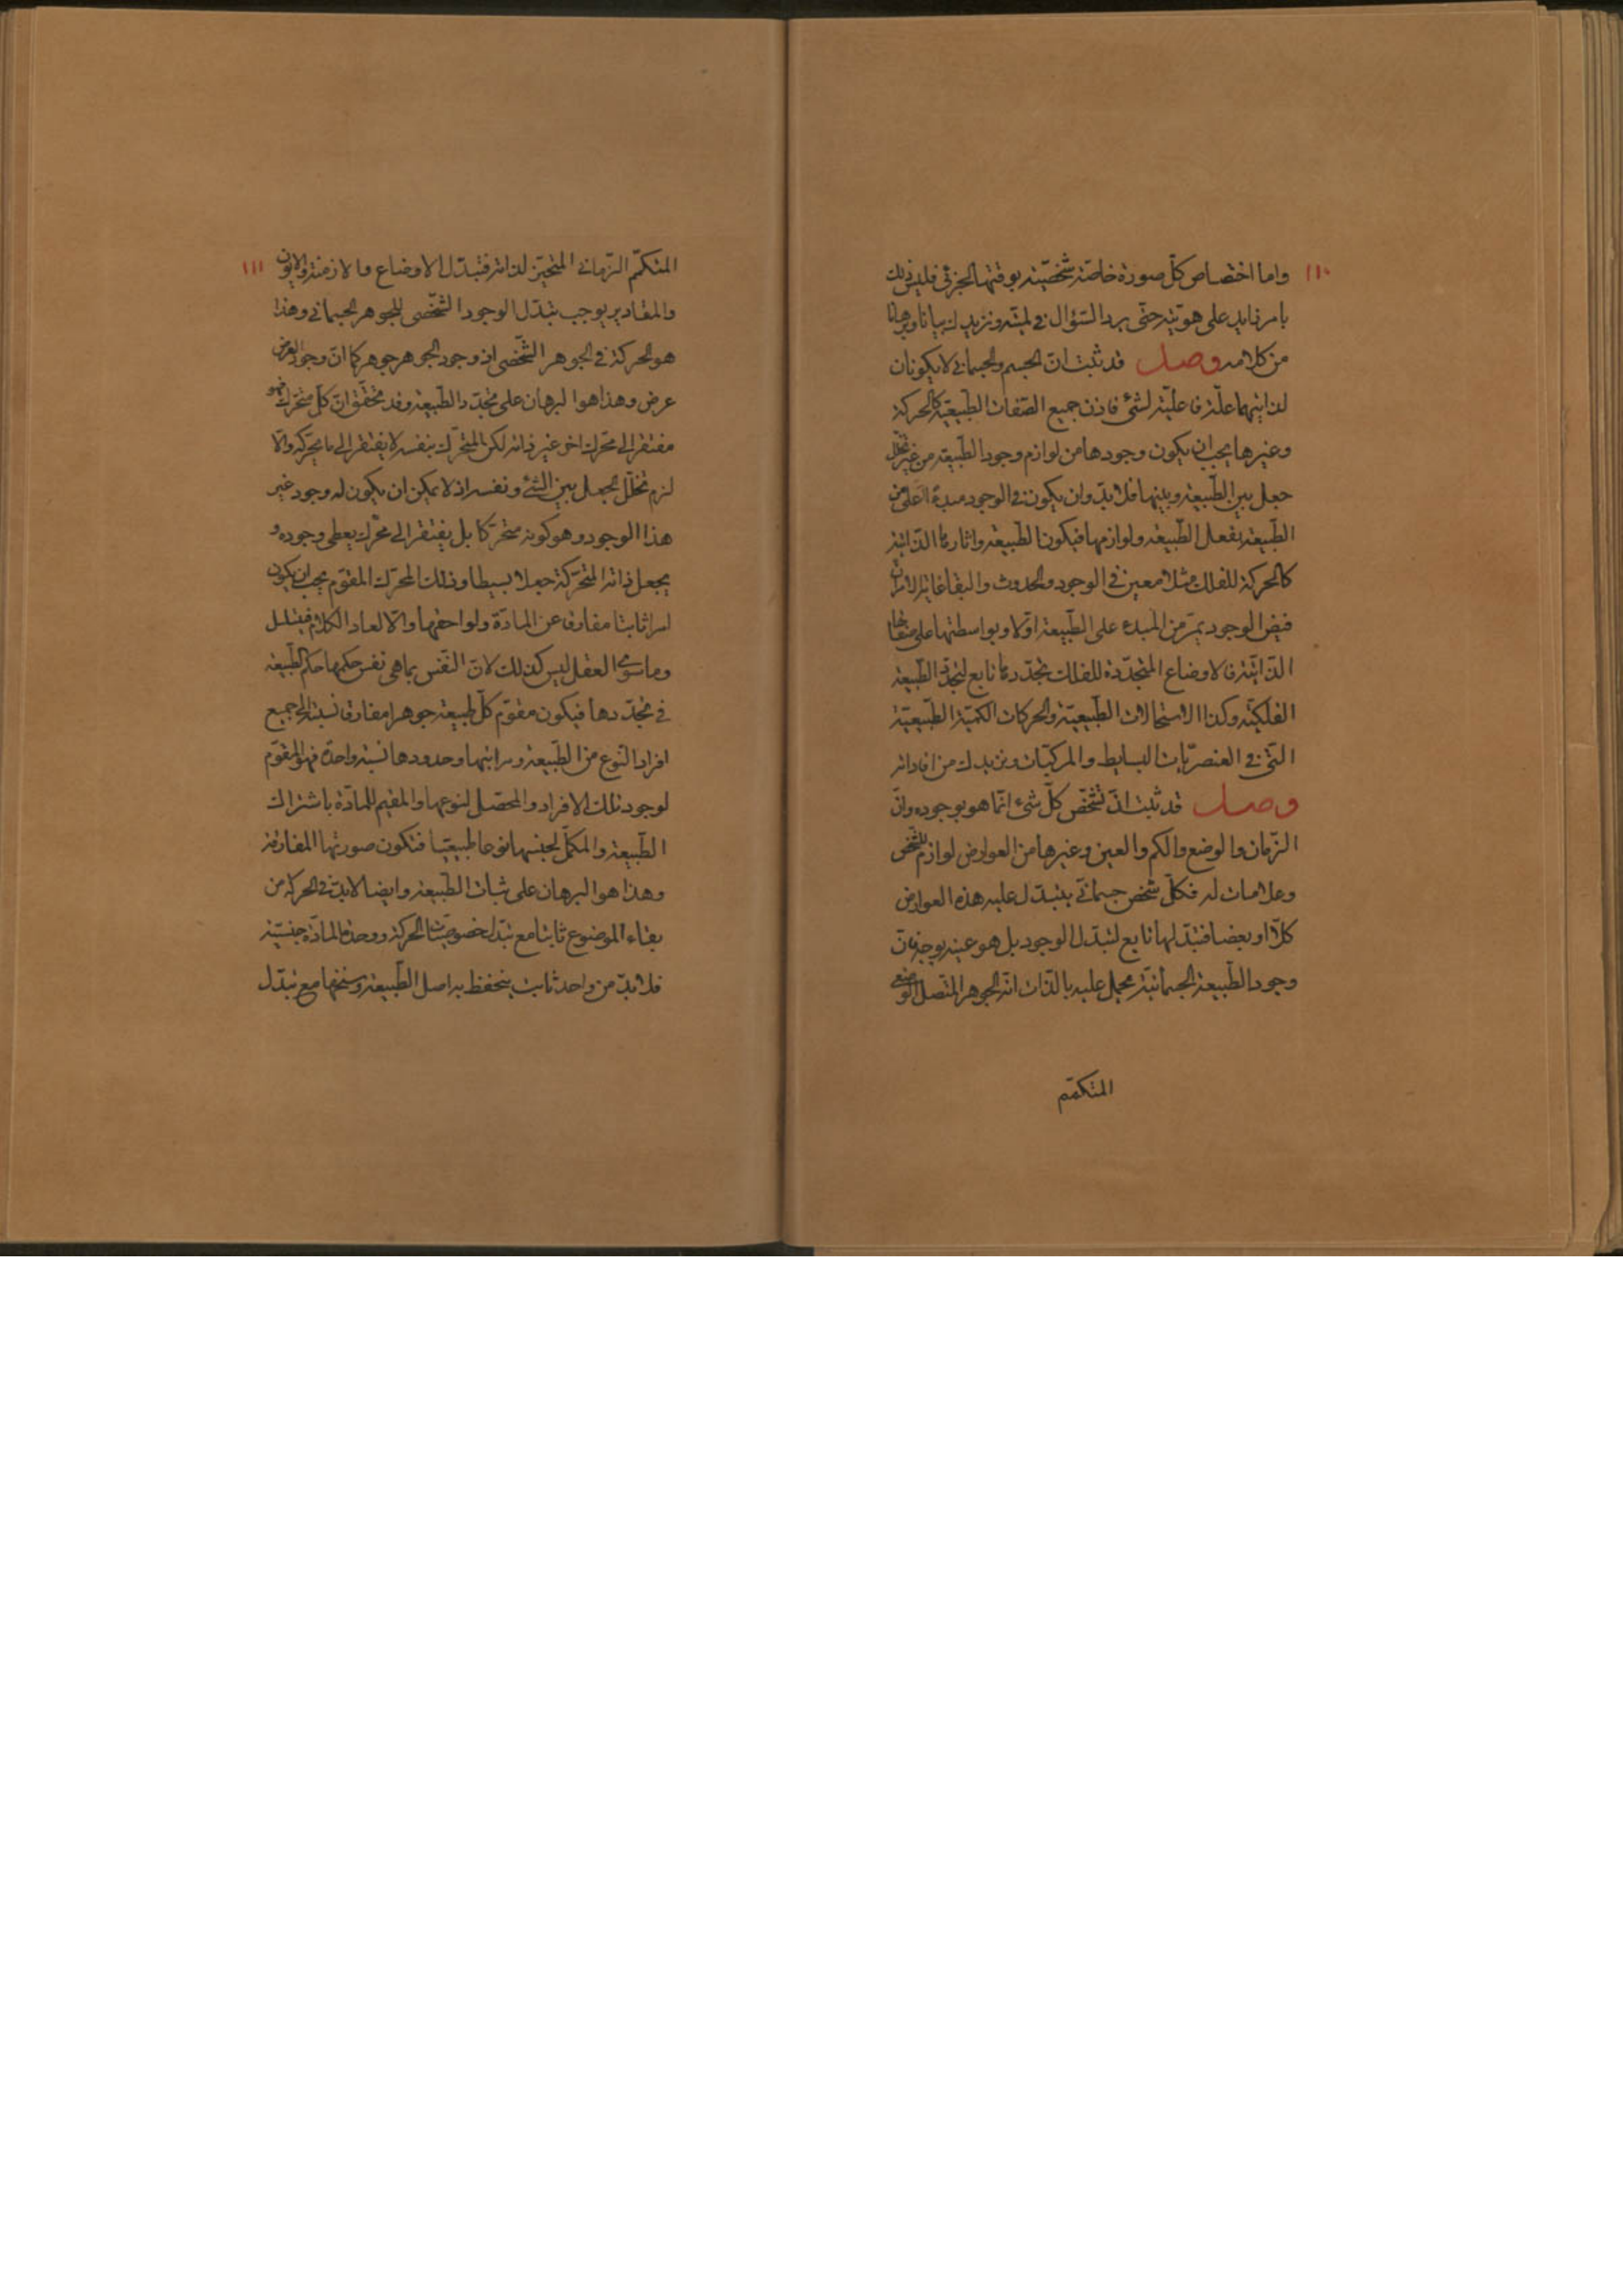 ١١٠
واما اختصاص كلّ صورة خاصّة شخصّية بوقتها الجزئي فليس ذلك
بامر زايد على هويّته حتّى يرد السّؤال في لميّته ونزيدك بيانا وبرهانا
من كلامه وصل قد ثبت انّ الجسم والجسماني لا يكونان
لذاتيهما علّة فاعليّة لشئ فاذن جميع الصّفات الطّبيعيّة كالحركة
وغيرها يجب ان يكون وجودها من لوازم وجود الطّبيعة من غير تخلّل
جعل بين الطّبيعة وبينها فلا بدّ وان يكون في الوجود مبدء اعلى من
الطّبيعة يفعل الطّبيعة ولوازمها فيكون الطّبيعة واثارها الذّاتية
كالحركة للفلك مثلا معين في الوجود والحدوث والبقا غاية الامر انّ
فيض الوجود يمرّ من المبدء على الطّبيعة اوّلا وبواسطتها على صفاتها
الذّاتيّة فالاوضاع المتجدّدة للفلك تجدّدها تابع لتجدّد الطّبيعة
الفلكيّة وكذا الاستحالات الطّبيعيّة والحركات الكميّة الطّبيعيّة
الّتى في العنصريّات البسايط والمركبّات ونزيدك من افاداته
وصل قد ثبت انّ تشخّص كلّ شئ انّما هو بوجوده وانّ
الزّمان والوضع والكم والعين وغيرها من العوارض لوازم للتّشخّص
وعلامات له فكلّ شخص جسمانّي يتبدّل عليه هذه العوارض
كلّا او بعضا فتبدّلها تابع لتبدّل الوجود بل هو عينه بوجه فانّ
وجود الطّبيعة الجسمانيّة يحمل عليه بالذّات انّه الجوهر المتّصل الوضعي
المتكمّم
١١١
المتكمّم الزّماني المتحيّز لذاته فتبدّل الاوضاع والازمنة والايون
والمقادير يوجب تبدّل الوجود الشّخّصى للجوهر الجسماني وهذا
هو الحركة في الجوهر الشّخّصى اذ وجود الجوهر جوهر كما انّ وجود العرض
عرض وهذا هو البرهان على تجدّد الطّبيعة وقد تحقّق انّ كلّ متحرّك فهو
مفتقر الى محرّك اخر غير ذاته لكن المتحرّك بنفسه لا يفتقر الى ما يحرّكه والّا
لزم تخلّل الجعل بين الشّئ ونفسه اذ لا يمكن ان يكون له وجود غير
هذا الوجود وهو كونه متحرّكا بل يفتقر الى محرّك يعطى وجوده و
يجعل ذاته المتحرّكة جعلا بسيطا وذلك المحرّك المقوّم يجب ان يكون
امرا ثابتا مفارق عن المادّة ولواحقها والّا لعاد الكلام فيتسلسل
وما سوى العقل ليس كذلك لانّ النّفس بما هى نفس حكمها حكم الطّبيعة
في تجدّدها فيكون مقوّم كلّ طبيعة جوهرا مفارق نسبته الى جميع
افراد النّوع من الطّبيعة ومراتبها وحدودها نسبة واحدة فهو المقوّم
لوجود تلك الافراد والمحصّل لنوعها والمقيم للمادّة باشتراك
الطّبيعة والمكمّل لجنسها نوعا طبيعيّا فتكون صورتها المفارقة
وهذا هو البرهان على ثبات الطّبيعة وايضا لا بدّ في الحركة من
بقاء الموضوع ثابتا مع تبدّل خصوصيّات الحركة ووحدة المادّة جنسيّة
فلا بدّ من واحد ثابت ينحفظ به اصل الطّبيعة وسنخها مع تبدّل